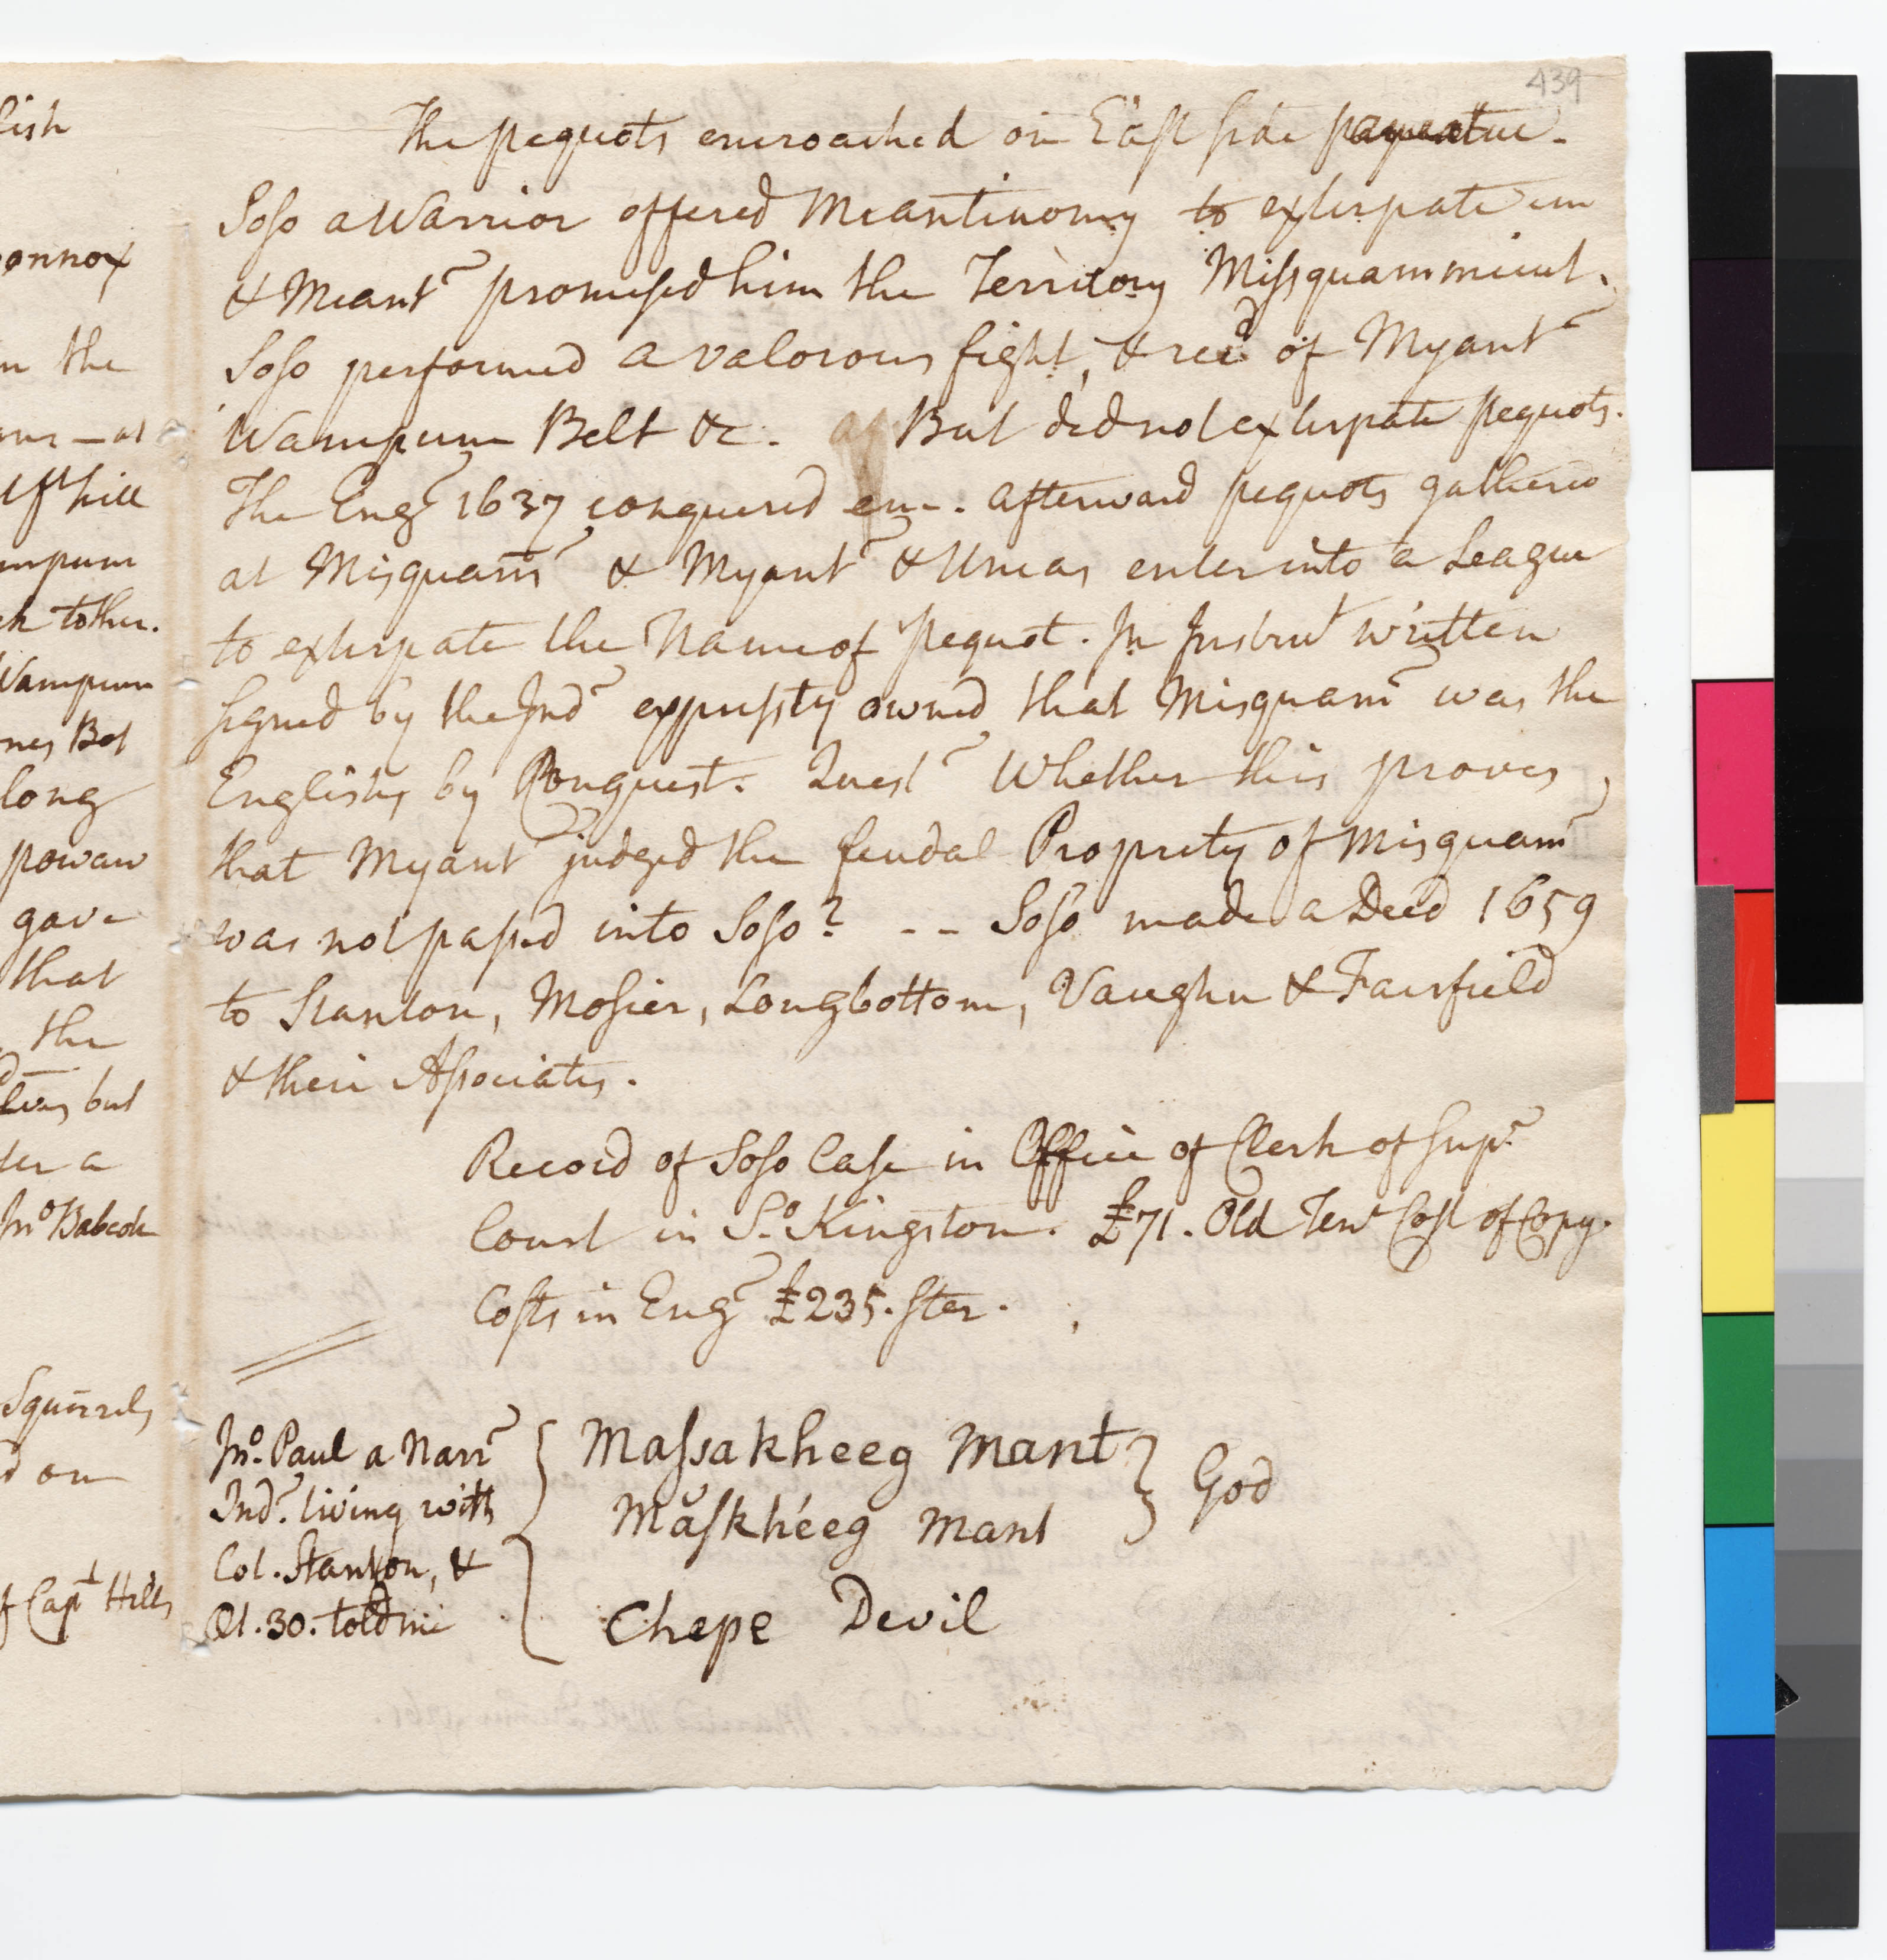 439
lish
onnox
n the
ans — at
hill
ampum
ch tother.
Wampum
nes Bot
long
powaw
gave
that
the
lves but
ter a
Jnº Babcock
Squirrels
d on
f Capt Hills
The Pequots encroached on East side paquatuc.
Soso a Warrior offered Meantinomy to exterpate em
& Meant promised him the Territory Missquammicut.
Soso performed a valorous fight, & recd of Myant
Wampum Belt &c. But did not exterpate Pequots.
The Eng 1637 conquered em. afterward Pequots gathered
at Misquam̄ & Myant & Uncas enter into a League
to exterpate the Name of Pequot. In Instrut written
signed by the Ind expressly owned that Misquam̄ was the
Englishs by Conquest. Quest Whether this proves
that Myant judged the feudal Proprety of Misquam̄
was not passed into Soso? -- Soso made a Deed 1659
to Stanton, Mosier, Longbottom, Vaughn & Fairfield
& their Associates.
Record of Soso Case in Office of Clerk of Supr
Court in Sº Kingston. £71. Old Tenr Cost of Copy.
Costs in Eng £235. ster.
Jnº Paul a Narr
Ind. living with
Col. Stanton, &
Æt. 30. told me
Massakheeg Mant
Măskhéeg Mant
God
Chepe Devil